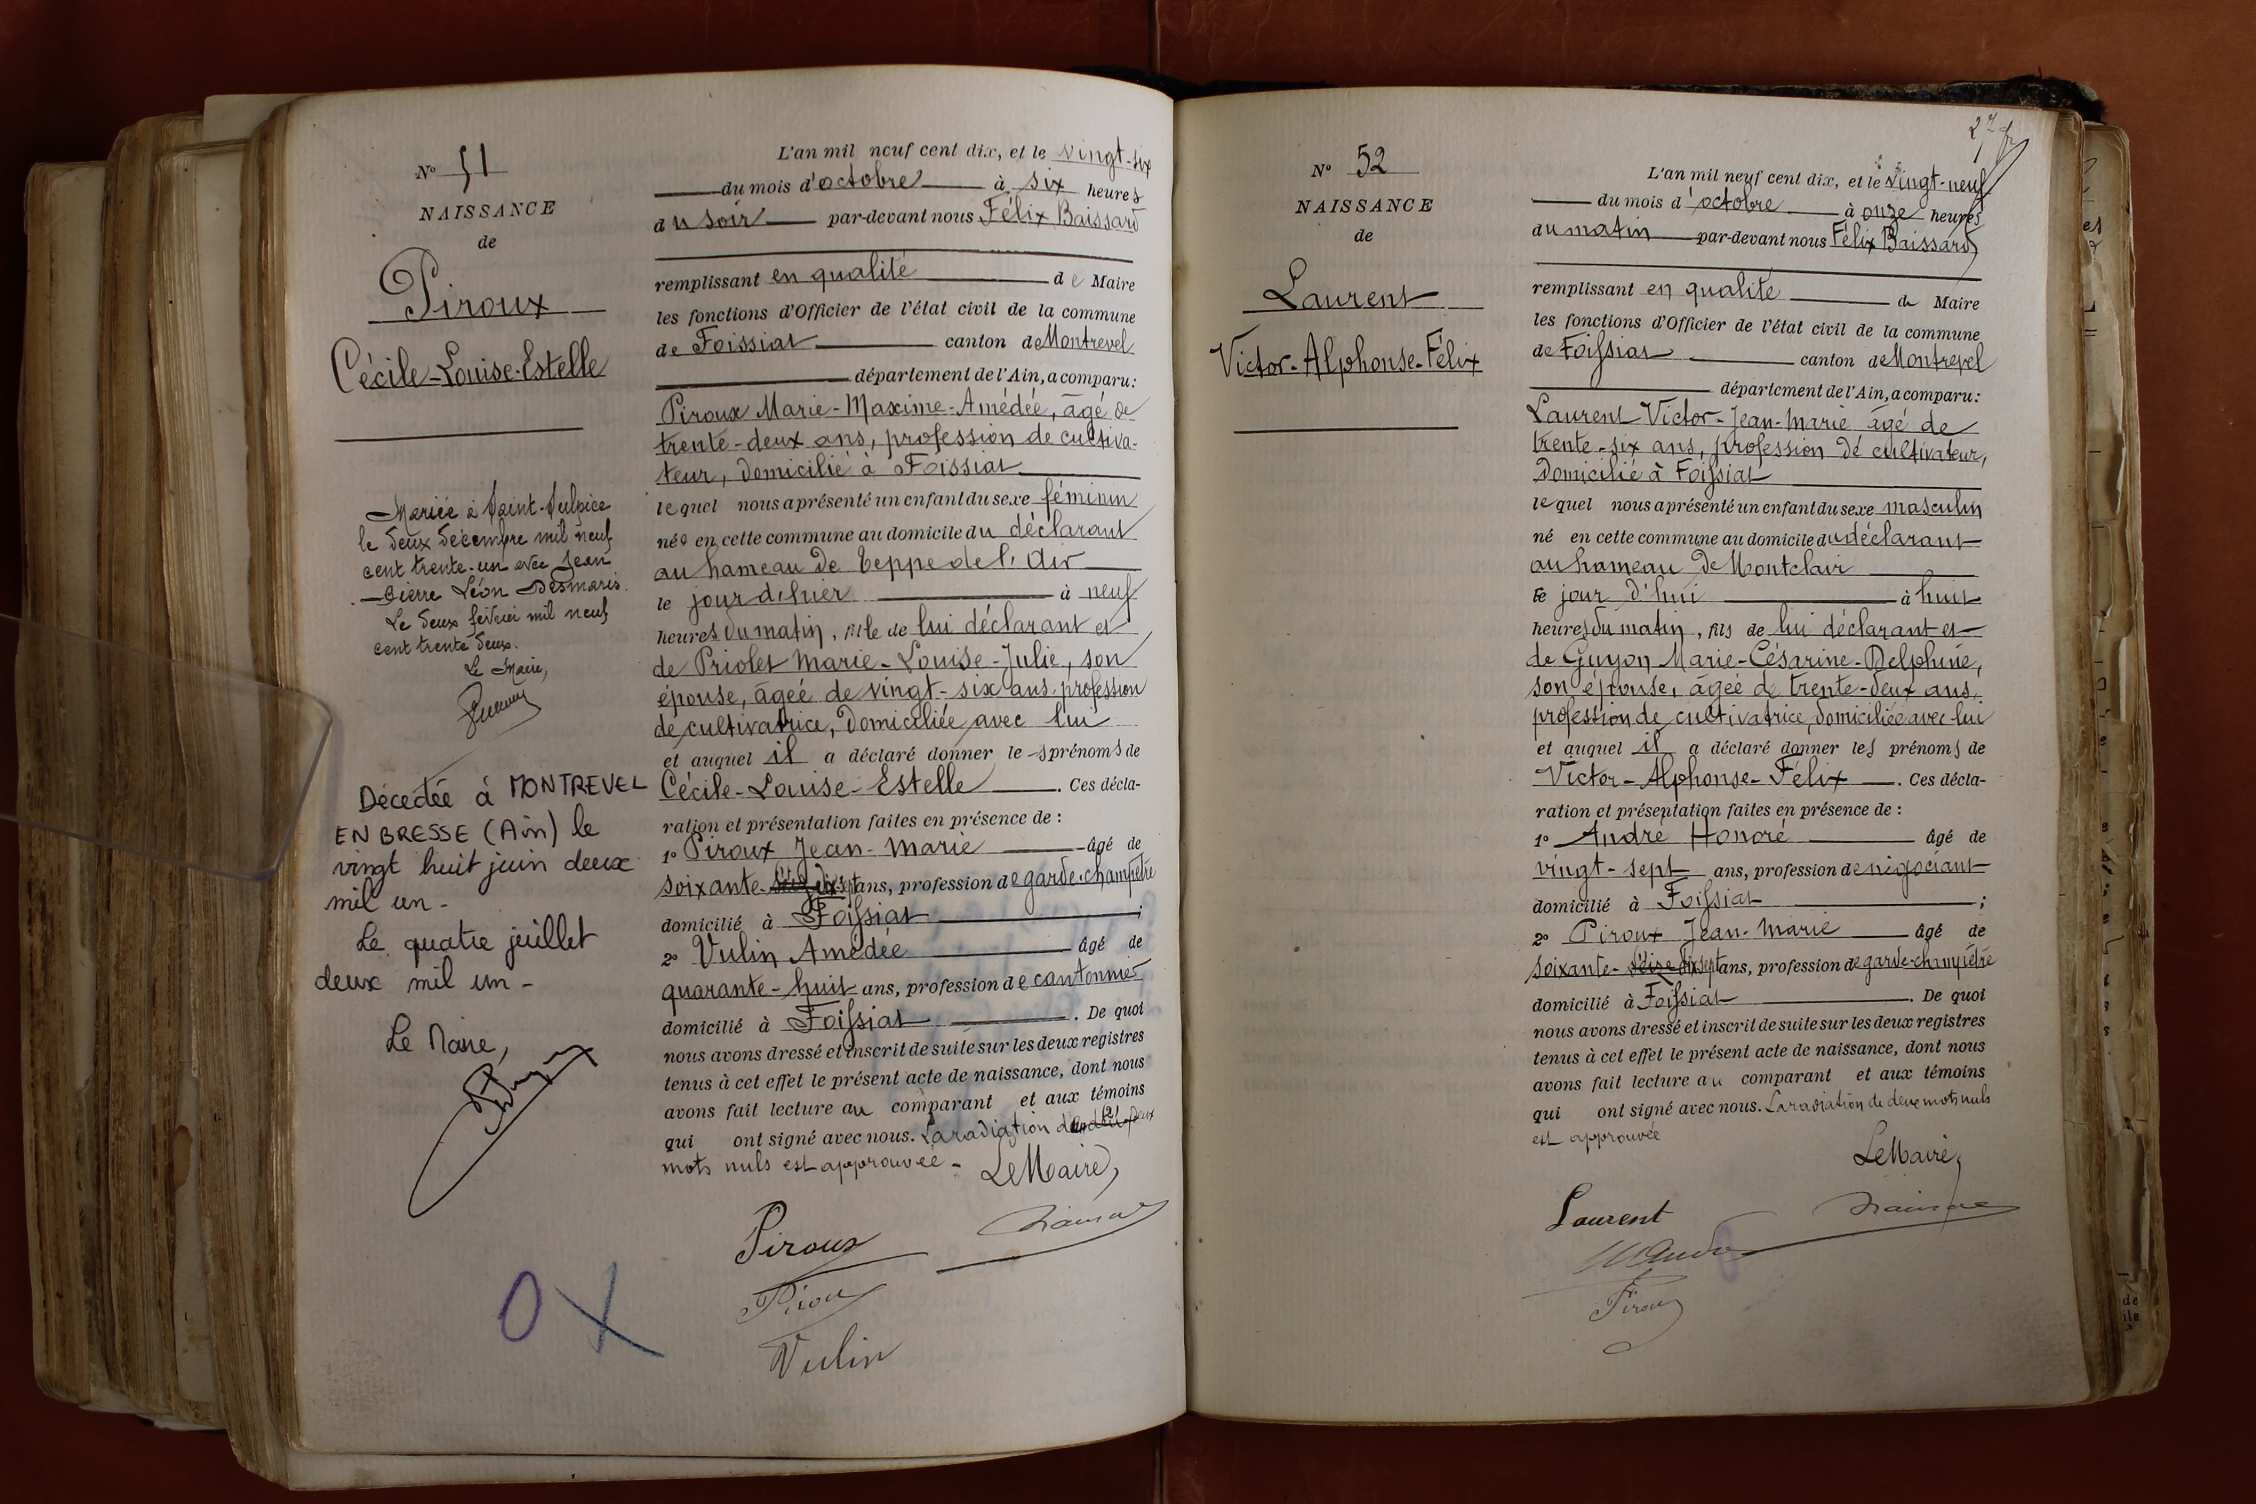 N° 51
NAISSANCE
de
Piroux
Cécile-Louise-Estelle
Mariée à Saint-Sulpice
le deux décembre mil neuf
cent trente-un avec Jean
Pierre Léon Desmaris.
Le deux février mil neuf
cent trente deux.
Le Maire,
Décédée à MONTREVEL
EN BRESSE (Ain) le
vingt huit juin deux
mil un -
Le quatre juillet
deux mil un -
Le Maire,
OX
L'an mil neuf cent dix, et le vingt-six
du mois d'octobre à six heures
du soir par-devant nous Félix Baissard
remplissant en qualité de Maire
les fonctions d'Officier de l'état civil de la commune
de Foissiat canton de Montrevel
département de l'Ain, a comparu:
Piroux Marie-Maxime-Amédée, âgé de
trente-deux ans, profession de cultiva-
teur, domicilié à Foissiat
lequel nous a présenté un enfant du sexe féminin
née en cette commune au domicile du déclarant
au hameau de teppe de l'Air
le jour d'hier à neuf
heures du matin, fille de lui déclarant et
de Priolet Marie-Louise-Julie, son
épouse, âgée de vingt-six ans, profession
de cultivatrice, domiciliée avec lui
et auquel il a déclaré donner les prénoms de
Cécile-Louise-Estelle. Ces décla-
ration et présentation faites en présence de :
1° Piroux Jean-Marie âgé de
soixante- dix sept ans, profession de garde-champêtre
domicilié à Foissiat ;
2° Vulin Amédée âgé de
quarante-huit ans, profession de cantonnier
domicilié à Foissiat . De quoi
nous avons dressé et inscrit de suite sur les deux registres
tenus à cet effet le présent acte de naissance, dont nous
avons fait lecture au comparant et aux témoins
qui ont signé avec nous. La radiation de deux
mots nuls est approuvée - Le Maire,
Piroux
Piroux
Vulin
27
N° 52
NAISSANCE
de
Laurent
Victor-Alphonse-Félix
L'an mil neuf cent dix, et le vingt-neuf
du mois d'octobre à onze heures
du matin par-devant nous Félix Baissard
remplissant en qualité de Maire
les fonctions d'Officier de l'état civil de la commune
de Foissiat canton de Montrevel
département de l'Ain, a comparu:
Laurent Victor-Jean-Marie âgé de
trente-six ans, profession de cultivateur,
domicilié à Foissiat
lequel nous a présenté un enfant du sexe masculin
né en cette commune au domicile du déclarant
au hameau de Montclair
le jour d'hui à huit
heures du matin, fils de lui déclarant et
de Guyon Marie-Césarine-Delphine,
son épouse, âgée de trente-deux ans,
profession de cultivatrice, domiciliée avec lui
et auquel il a déclaré donner les prénoms de
Victor-Alphonse-Félix . Ces décla-
ration et présentation faites en présence de :
1° André Honoré âgé de
vingt-sept ans, profession de négociant
domicilié à Foissiat ;
2° Piroux Jean-Marie âgé de
soixante- dix sept ans, profession de garde-champêtre
domicilié à Foissiat . De quoi
nous avons dressé et inscrit de suite sur les deux registres
tenus à cet effet le présent acte de naissance, dont nous
avons fait lecture au comparant et aux témoins
qui ont signé avec nous. La radiation de deux mots nuls
est approuvée
Le Maire,
Laurent
Piroux